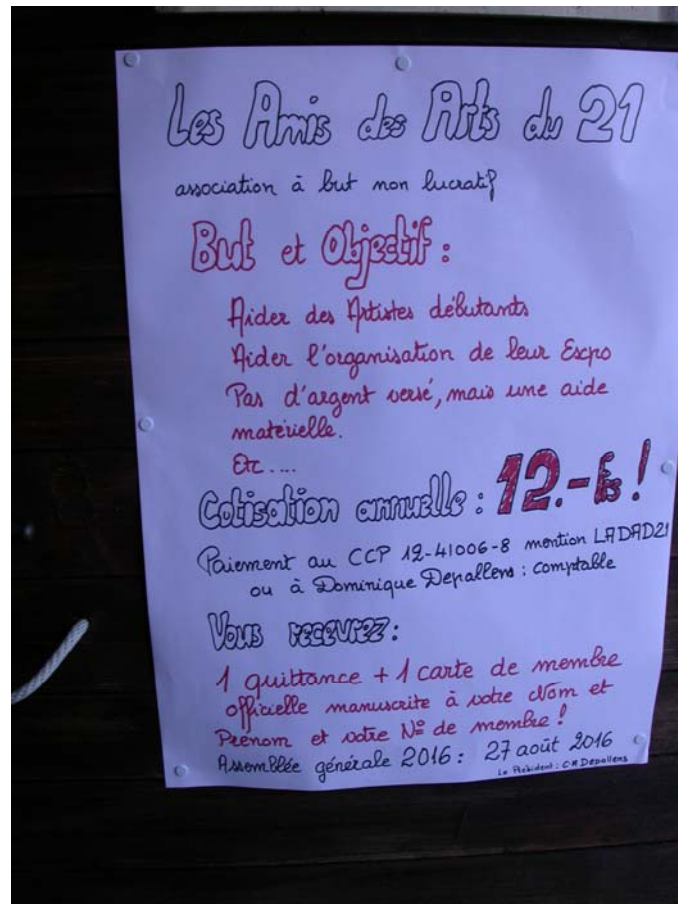 Les Amis des Arts du 21
association à but non lucratif
But et Objectif :
Aider des Artistes débutants
Aider l'organisation de leur Expo
Pas d'argent versé, mais une aide
matérielle.
Etc....
Cotisation annuelle : 12.- Frs !
Paiement au CCP 12-41006-8 mention LADAD21
ou à Dominique Depallens : comptable
Vous recevrez :
1 quittance + 1 carte de membre
officielle manuscrite à votre Nom et
Prénom et votre N° de membre !
Assemblée générale 2016 : 27 août 2016
Le Président : C-A Depallens